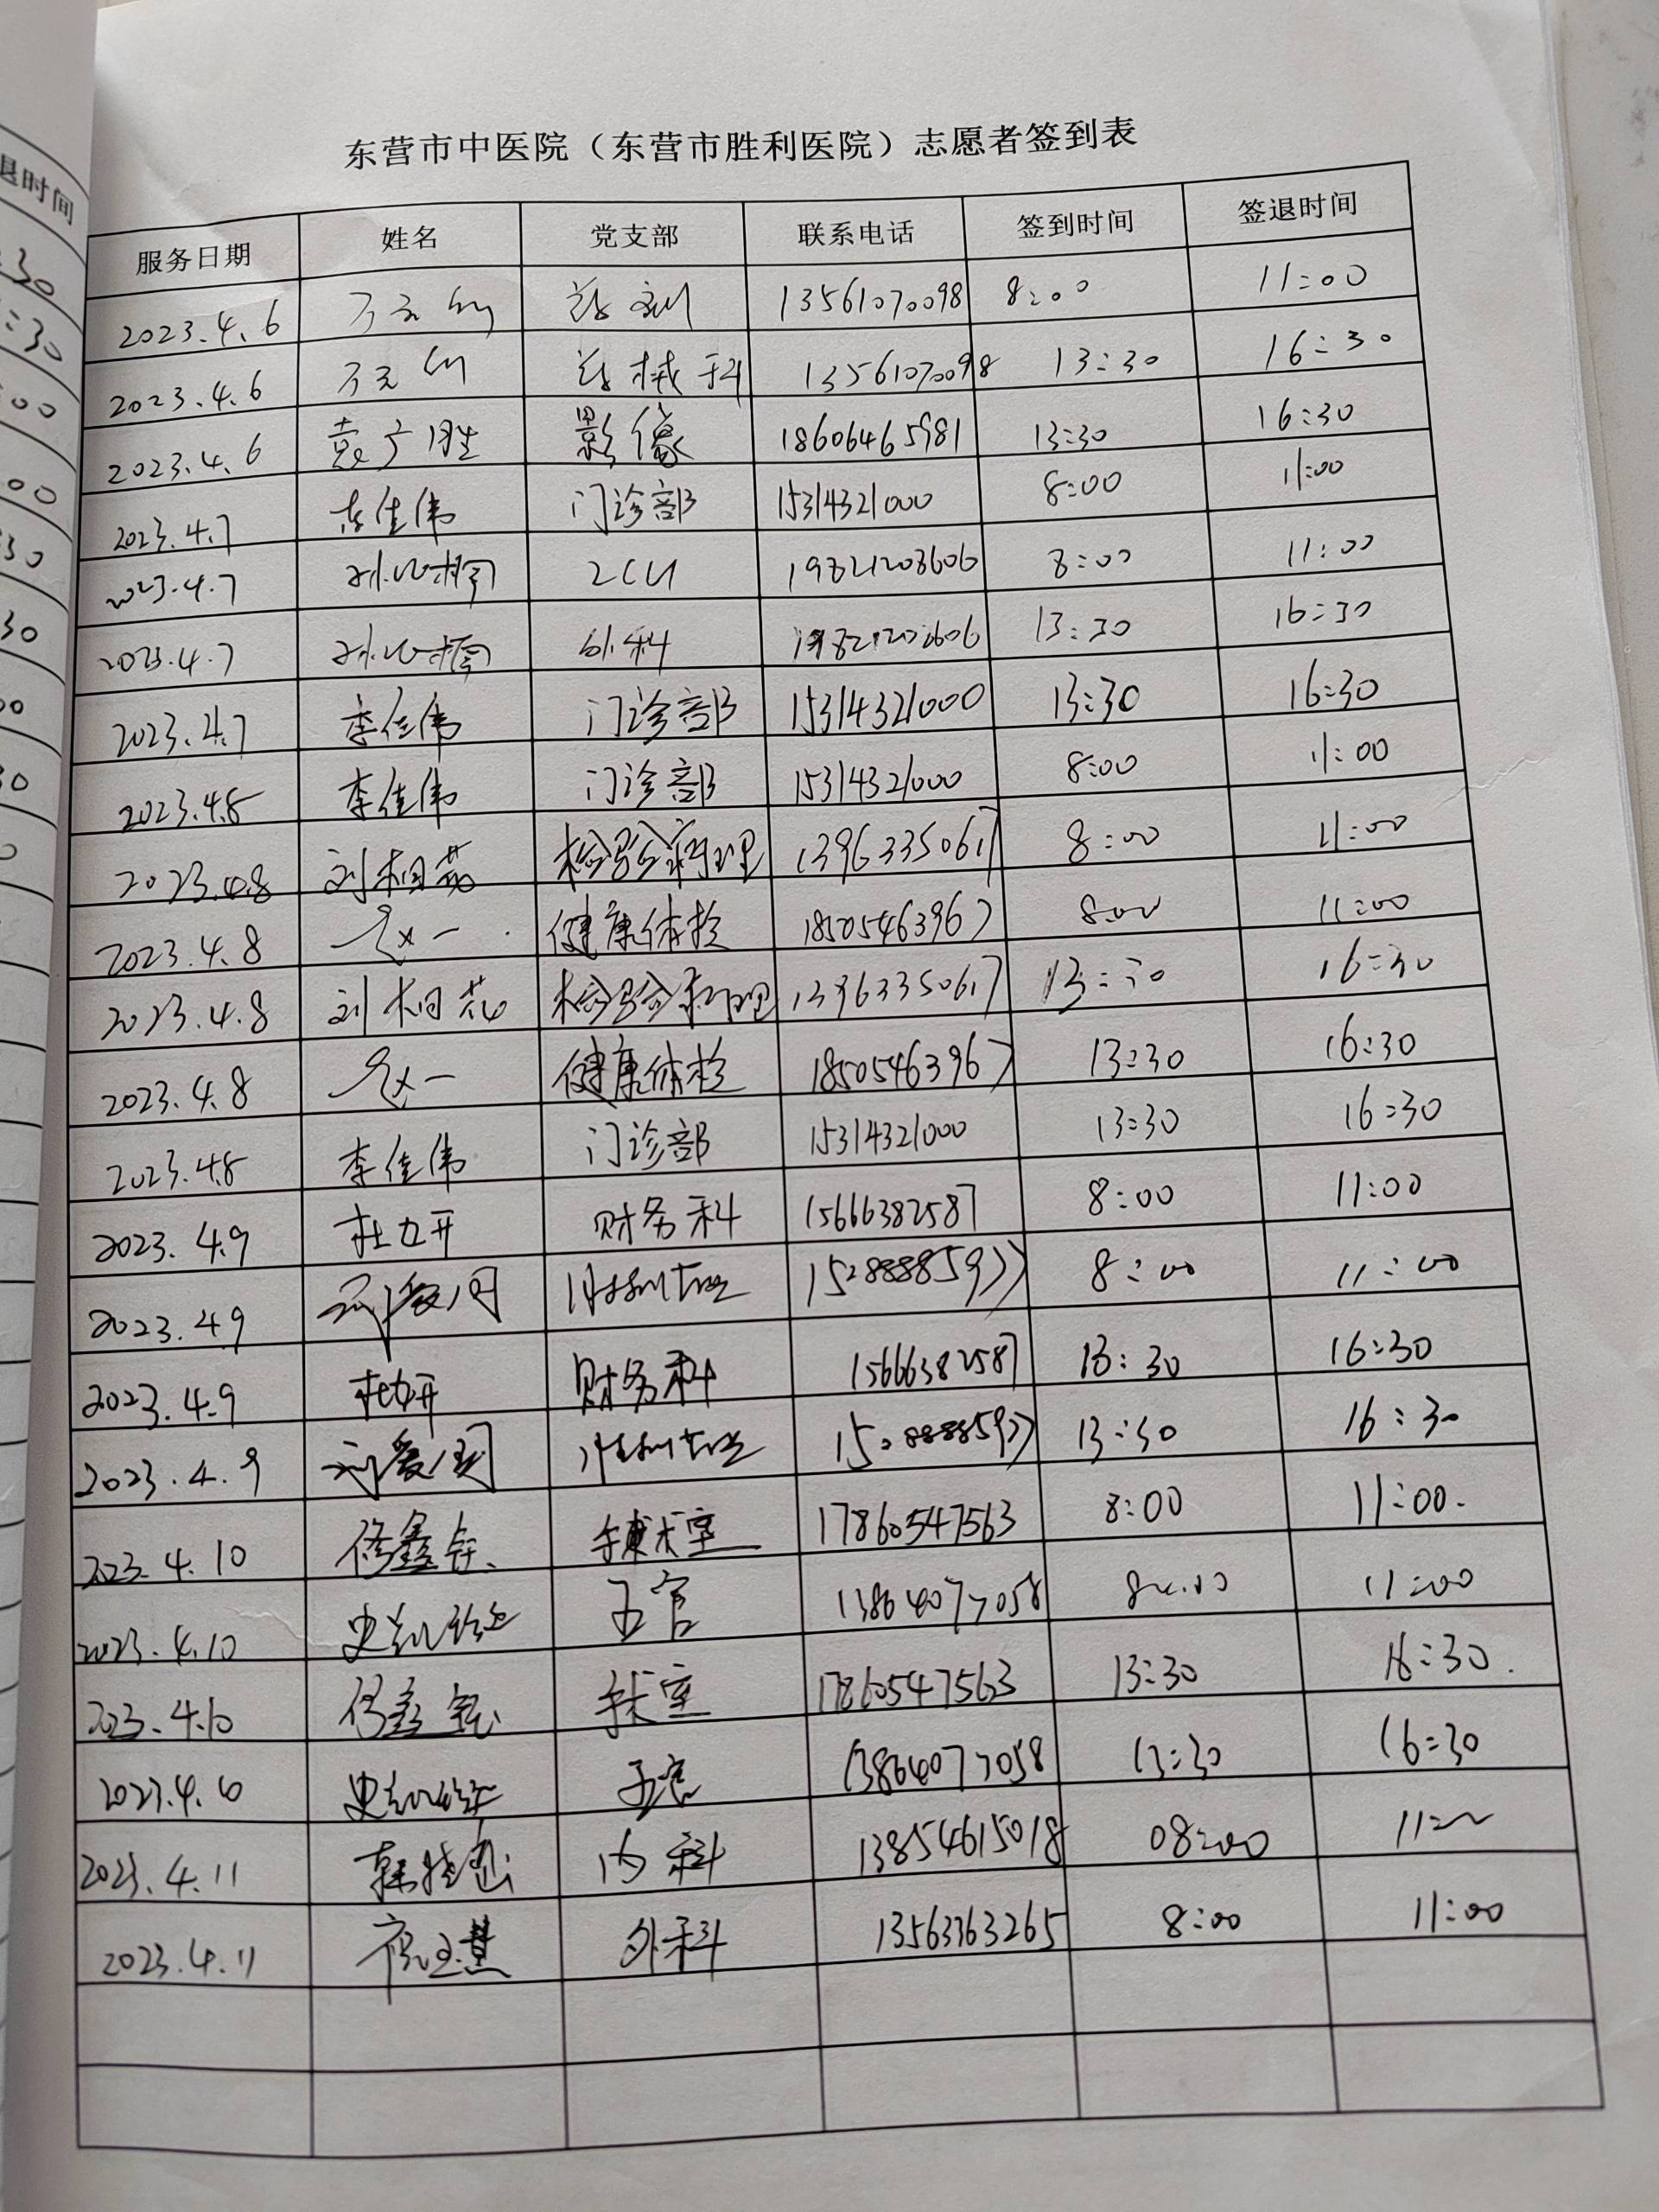 东营市中医院（东营市胜利医院）志愿者签到表
服务日期 姓名 党支部 联系电话 签到时间 签退时间
2023.4.6 13561070098 8:00 11:00
2023.4.6 械科 13561070098 13:30 16:30
2023.4.6 袁广胜 影像 18606465981 13:30 16:30
2023.4.7 李佳伟 门诊部 15314321000 8:00 11:00
2023.4.7 ICU 19821208606 8:00 11:00
2023.4.7 外科 13:30 16:30
2023.4.7 李佳伟 门诊部 15314321000 13:30 16:30
2023.4.8 李佳伟 门诊部 15314321000 8:00 11:00
2023.4.8 刘桐花 检验病理 13963350617 8:00 11:00
2023.4.8 健康体检 18505463967 8:00 11:00
2023.4.8 刘桐花 检验病理 13963350617 13:30 16:30
2023.4.8 健康体检 18505463967 13:30 16:30
2023.4.8 李佳伟 门诊部 15314321000 13:30 16:30
2023.4.9 杜力开 财务科 15666382587 8:00 11:00
2023.4.9 15288885977 8:00 11:00
2023.4.9 杜力开 财务科 15666382587 13:30 16:30
2023.4.9 15288885977 13:30 16:30
2023.4.10 修鑫 手术室 17860547563 8:00 11:00.
2023.4.10 五官 13864077058 11:00
2023.4.10 手术室 17860547563 13:30 16:30.
2023.4.10 五官 13864077058 13:30 16:30
2023.4.11 内科 13854615018 08:00 11:00
2023.4.11 外科 13563363265 8:00 11:00
退时间
:30
:30
:00
:00
30
30